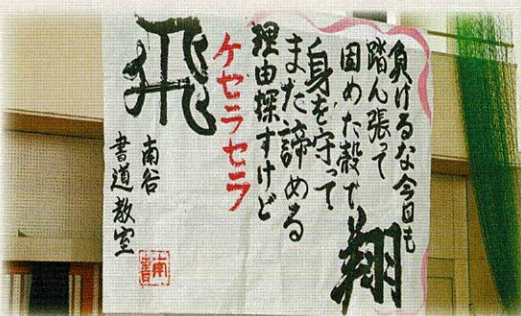 負けるな今日も
踏ん張って
固めた殻で
身を守って
また諦める
理由探すけど
ケセラセラ
翔
飛
南谷
書道教室